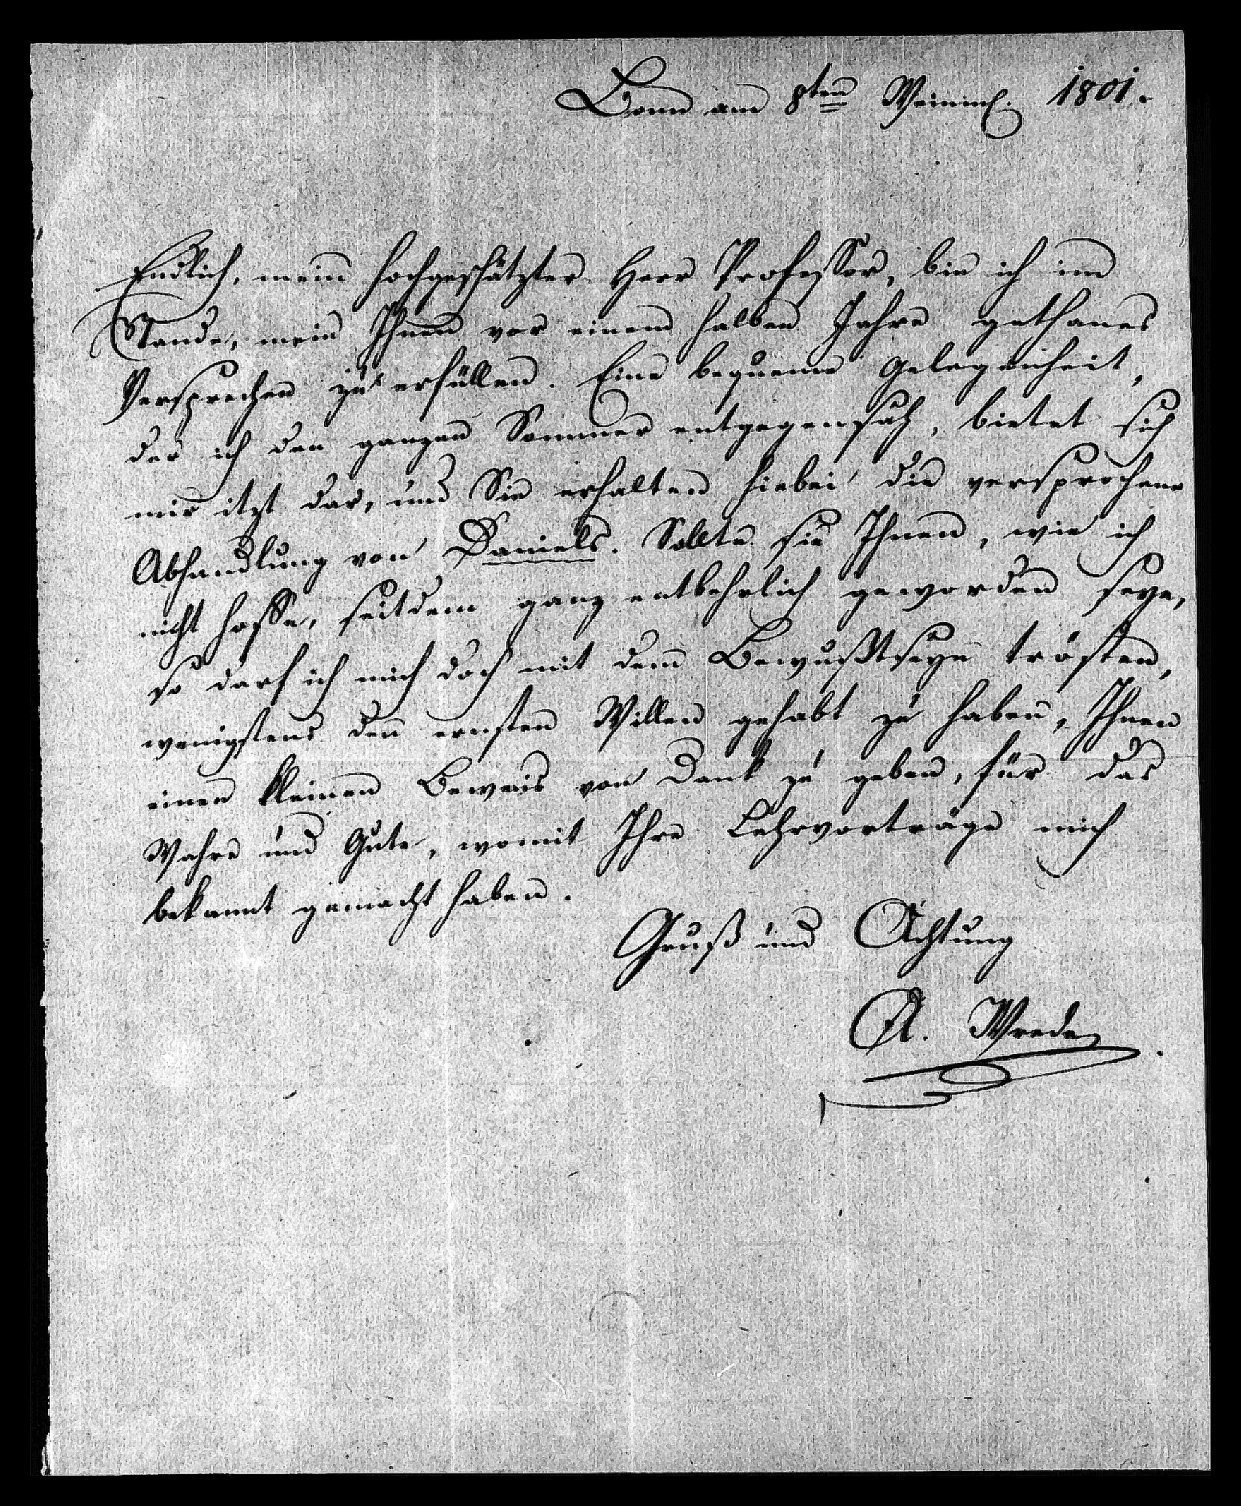 Bonn am 8ten Weinm. 1801.
Endlich, mein hochgeschätzter Herr Professor, bin ich im
Stande, mein Ihnen vor einem halben Jahre gethanes
Versprechen zu erfüllen. Eine bequeme Gelegenheit,
der ich den ganzen Sommer entgegensah, bietet sich
mir itzt dar, und Sie erhalten hiebei die versprochene
Abhandlung von Daniels. Sollte sie Ihnen, wie ich
nicht hoffe, seitdem ganz entbehrlich geworden seyn,
so darf ich mich doch mit dem Bewußtseyn trösten,
wenigstens den ernsten Willen gehabt zu haben, Ihnen
einen kleinen Beweis von Dank zu geben, für das
Wahre und Gute, womit Ihre Lehrvorträge mich
bekannt gemacht haben.
Gruß und Achtung
A. Wrede